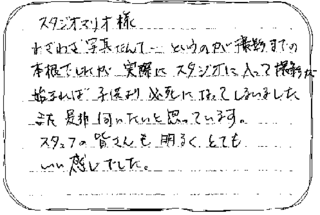 スタジオマリオ様
わざわざ写真なんて… というのが撮影までの
本根でしたが 実際に スタジオに入って撮影が
始まれば 子供より 必死になってしまいました
また 是非 伺いたいと思っています。
スタッフの皆さんも 明るく、とても
いい感じでした。